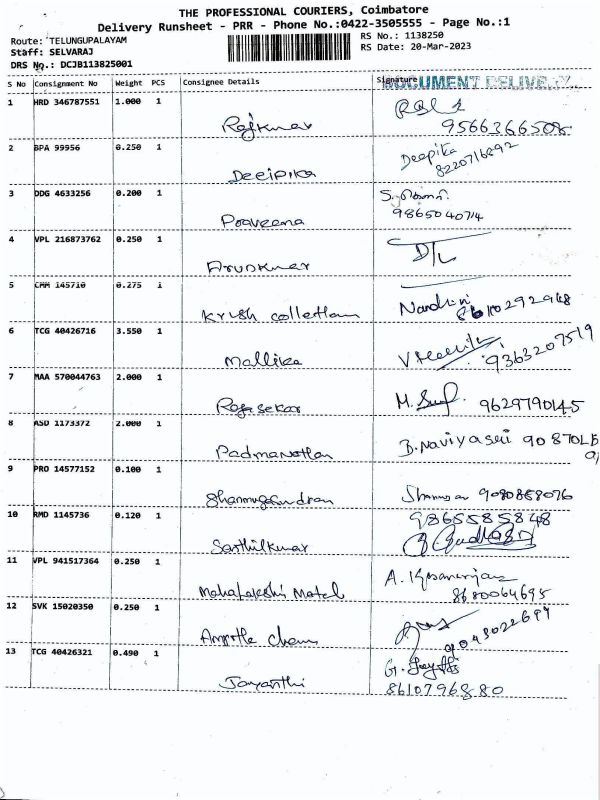 THE PROFESSIONAL COURIERS, Coimbatore
Delivery Runsheet - PRR - Phone No.:0422-3505555 - Page No.:1
Route: TELUNGUPALAYAM
Staff: SELVARAJ
DRS No.: DCJB113825001
RS No.: 1138250
RS Date: 20-Mar-2023
S No Consignment No Weight PCS Consignee Details Signature DOCUMENT DELIVERY
1 HRD 346787551 1.000 1
Rajkumar 9566366508
2 BPA 99956 0.250 1 Deepika
Deeipika 8220716892
3 DDG 4633256 0.200 1
Praveena 9865040714
4 VPL 216873762 0.250 1
Arunkumar
5 CMM 145710 0.275 1
Krish collection Nandhini 8610292948
6 TCG 40426716 3.550 1
Mallika 9363207519
7 MAA 570044763 2.000 1
Rajasekar M. 9629790145
8 ASD 1173372 2.000 1
Padmanathan B. Naviyasri
9 PRO 14577152 0.100 1
Shanmugandran 9080858076
10 RMD 1145736 0.120 1 9865585848
Senthilkumar
11 VPL 941517364 0.250 1
Mahalakshi Matel 8680064695
12 SVK 15020350 0.250 1
13 TCG 40426321 0.490 1
Jayanthi 8610796880